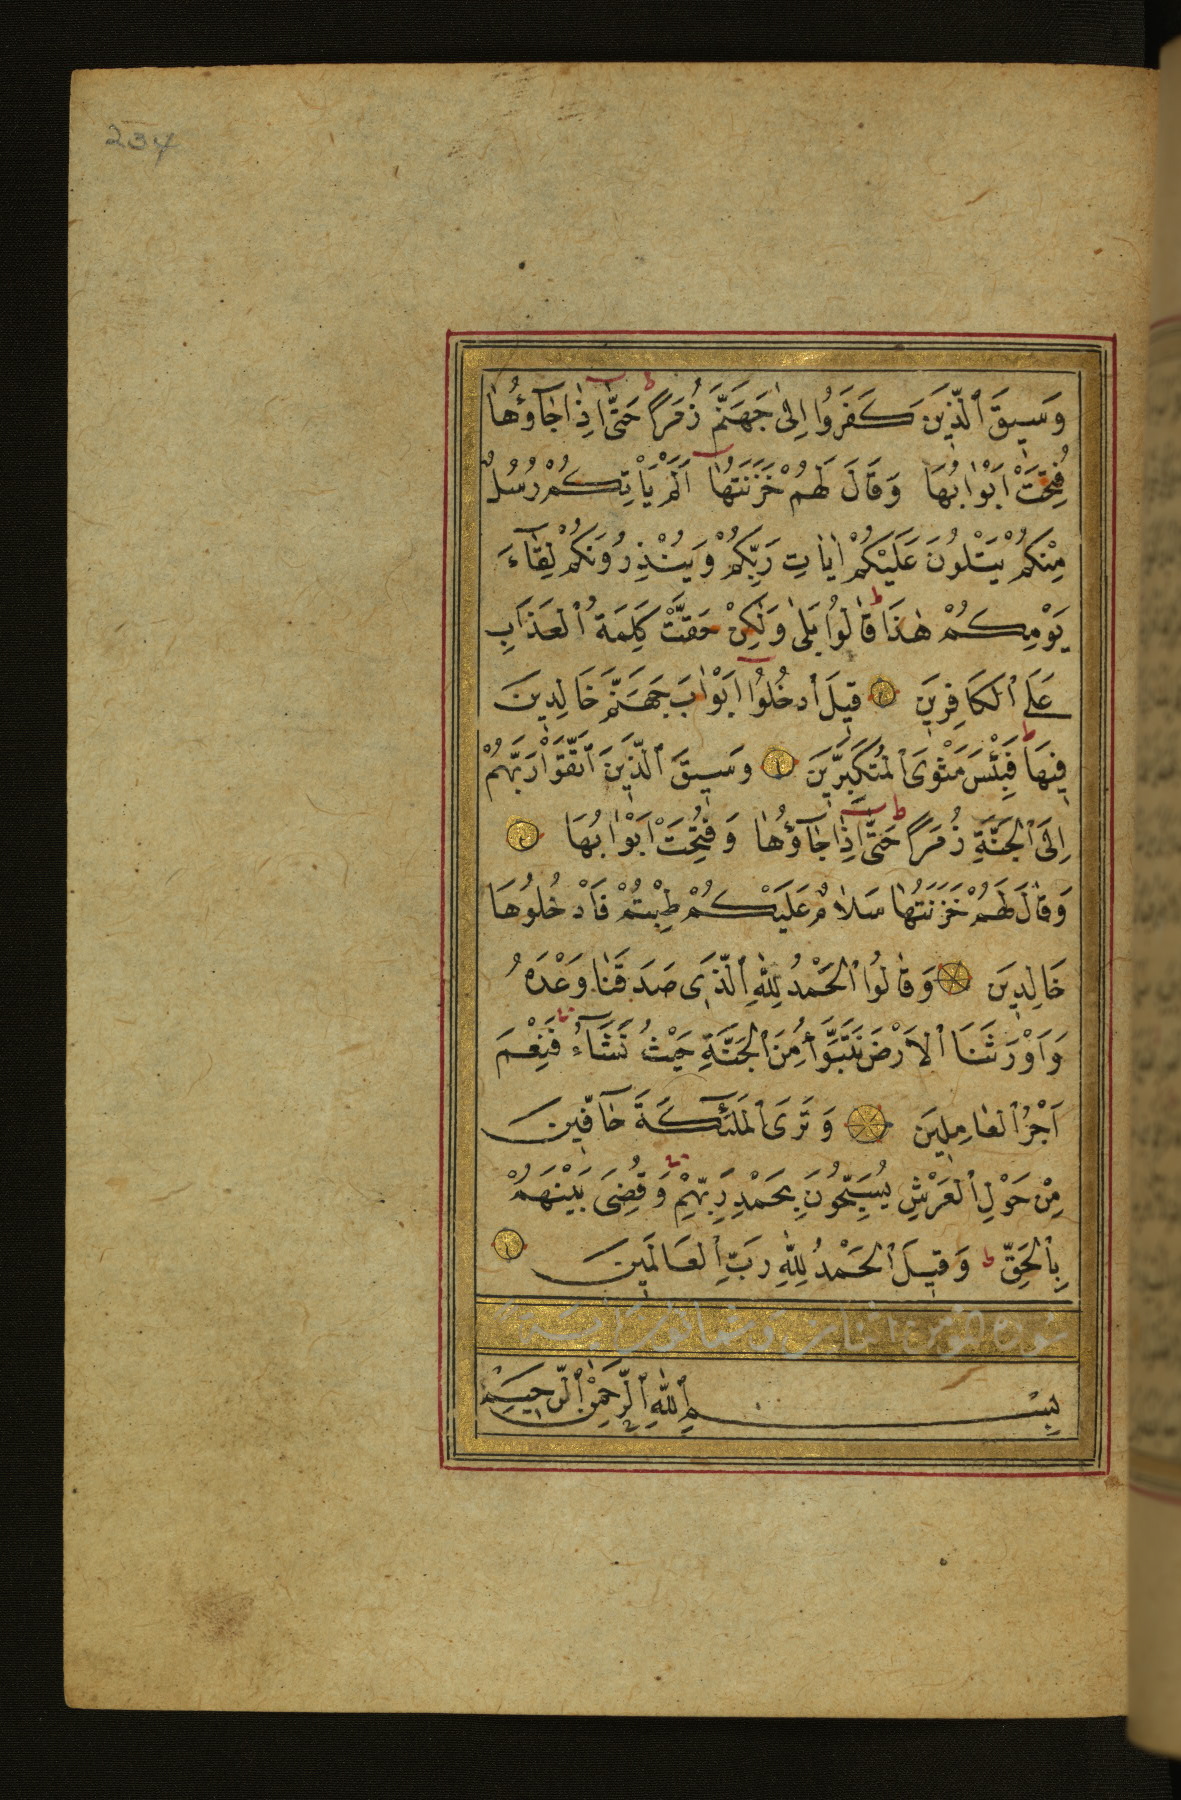 234
وَسِيقَ ٱلَّذِينَ كَفَرُوا اِلىٰ جَهَنَّمَ زُمَرًا ط حَتّٰى اِذَا جَآؤُهَا
فُتِحَتْ اَبْوَابُهَا وَقَالَ لَهُمْ خَزَنَتُهَا اَلَمْ يَأْتِكُمْ رُسُلٌ
مِنْكُمْ يَتْلُونَ عَلَيْكُمْ اٰيَاتِ رَبِّكُمْ وَيُنْذِرُونَكُمْ لِقَآءَ
يَوْمِكُمْ هٰذَا ط قَالُوا بَلىٰ وَلٰكِنْ حَقَّتْ كَلِمَةُ ٱلْعَذَابِ
عَلَى ٱلْكَافِرِينَ قِيلَ ٱدْخُلُوا اَبْوَابَ جَهَنَّمَ خَالِدِينَ
فِيهَا ط فَبِئْسَ مَثْوَى ٱلْمُتَكَبِّرِينَ وَسِيقَ ٱلَّذِينَ ٱتَّقَوْا رَبَّهُمْ
اِلَى ٱلْجَنَّةِ زُمَرًا ط حَتّٰى اِذَا جَآؤُهَا وَفُتِحَتْ اَبْوَابُهَا
وَقَالَ لَهُمْ خَزَنَتُهَا سَلَامٌ عَلَيْكُمْ طِبْتُمْ فَادْخُلُوهَا
خَالِدِينَ وَقَالُوا ٱلْحَمْدُ لِلّٰهِ ٱلَّذِى صَدَقَنَا وَعْدَهُ
وَاَوْرَثَنَا ٱلْاَرْضَ نَتَبَوَّأُ مِنَ ٱلْجَنَّةِ حَيْثُ نَشَآءُ فَنِعْمَ
اَجْرُ ٱلْعَامِلِينَ وَتَرَى ٱلْمَلٰئِكَةَ حَآفِّينَ
مِنْ حَوْلِ ٱلْعَرْشِ يُسَبِّحُونَ بِحَمْدِ رَبِّهِمْ وَقُضِىَ بَيْنَهُمْ
بِٱلْحَقِّ ط وَقِيلَ ٱلْحَمْدُ لِلّٰهِ رَبِّ ٱلْعَالَمِينَ
بِسْمِ ٱللّٰهِ ٱلرَّحْمٰنِ ٱلرَّحِيمِ